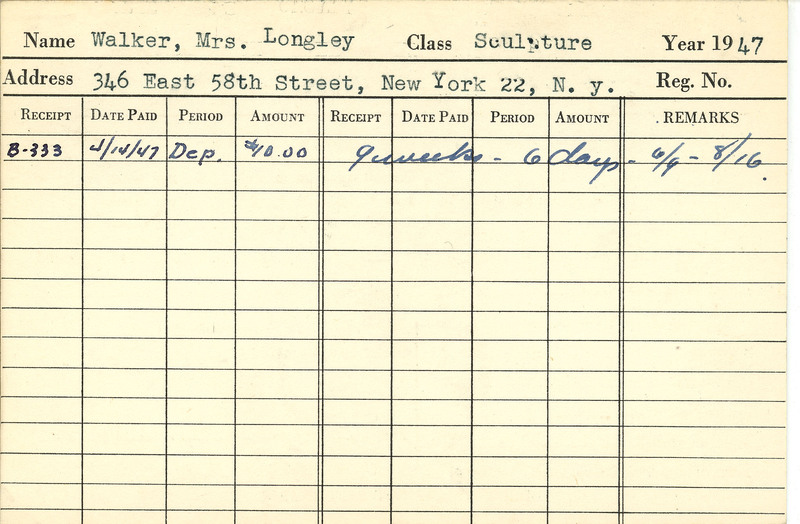 Name Walker, Mrs. Longley Class Sculpture Year 1947
Address 346 East 58th Street, New York 22, N. y. Reg. No.
RECEIPT DATE PAID PERIOD AMOUNT RECEIPT DATE PAID PERIOD AMOUNT REMARKS
B-333 4/14/47 Dep. $10.00 9 weeks - 6 days - 6/9 - 8/16.